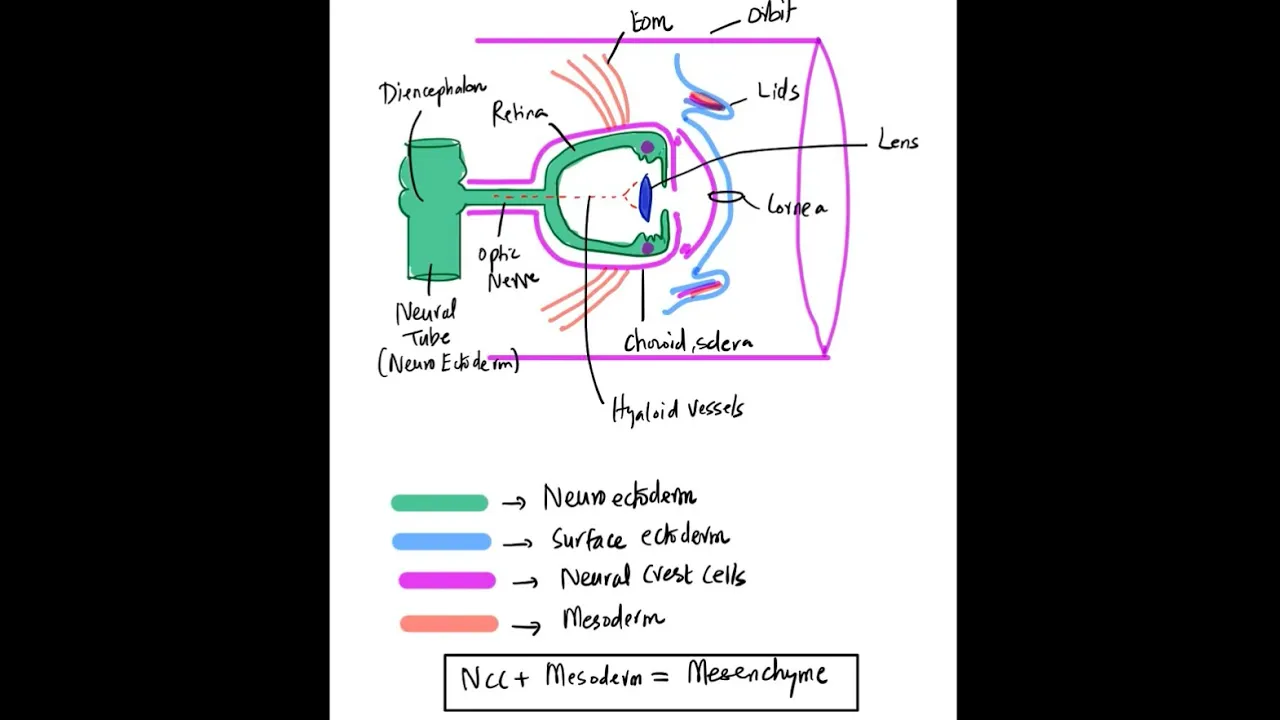 Eom
Orbit
Diencephalon
Retina
Lids
Lens
Cornea
Optic
Nerve
Neural
Tube
(Neuro Ectoderm)
Choroid, sclera
Hyaloid vessels
→ Neuroectoderm
→ Surface ectoderm
→ Neural Crest Cells
→ Mesoderm
NCC + Mesoderm = Mesenchyme